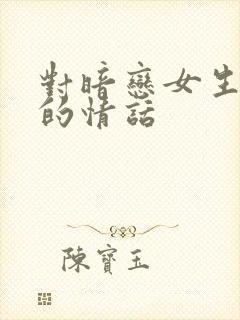 對暗戀女生
的情話
陳寶玉